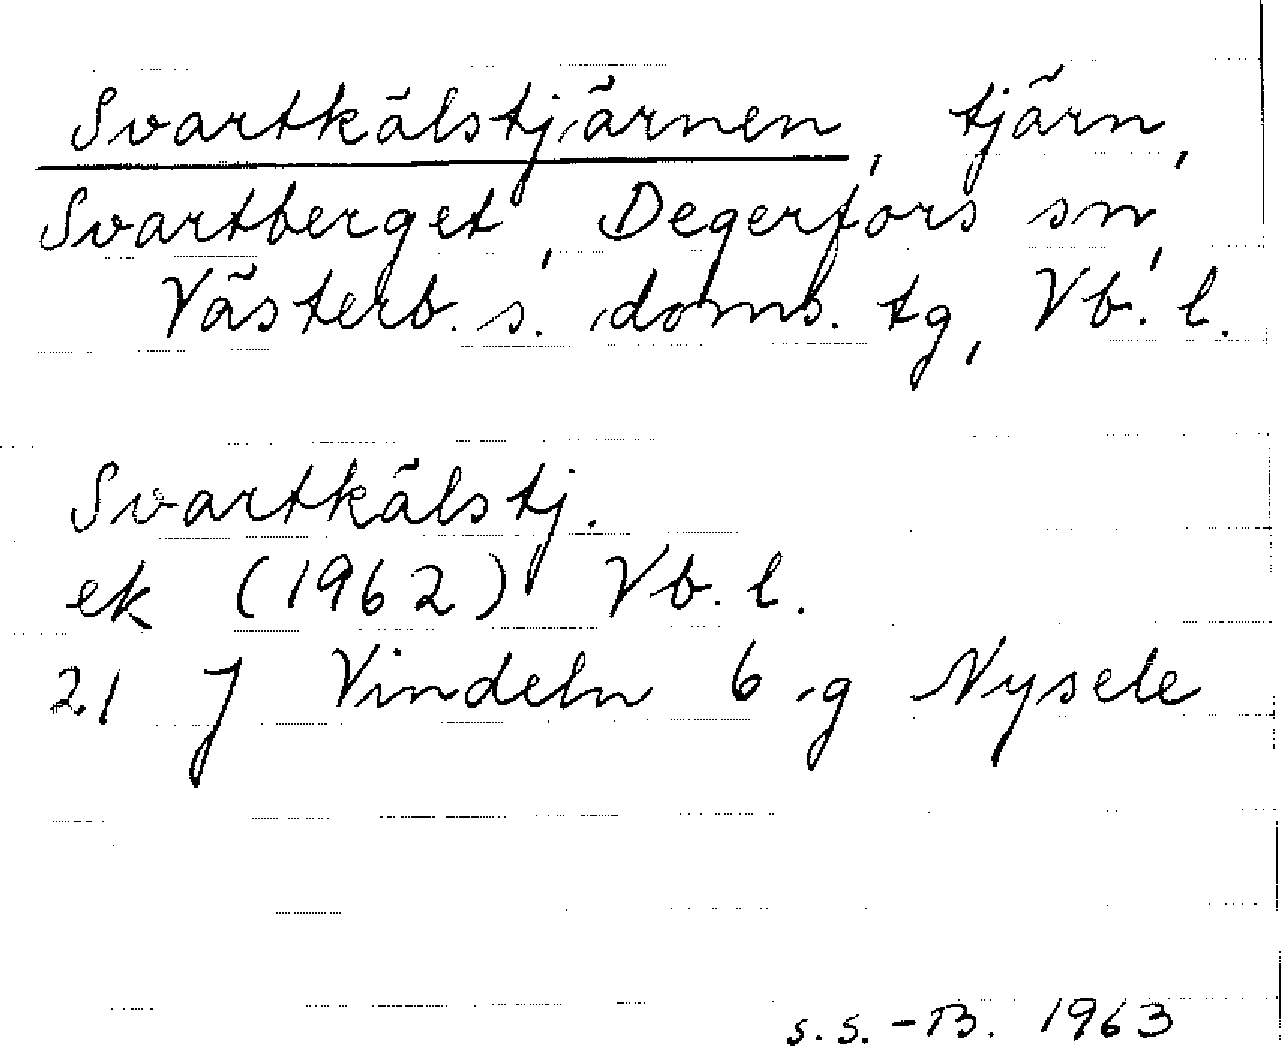 Svartkälstjärnen, tjärn,
Svartberget, Degerfors sn,
Västerb. s. doms. tg, Vb. l.
Svartkälstj.
ek (1962) Vb. l.
21 J Vindeln 6 g Nysele
s.s.-B. 1963